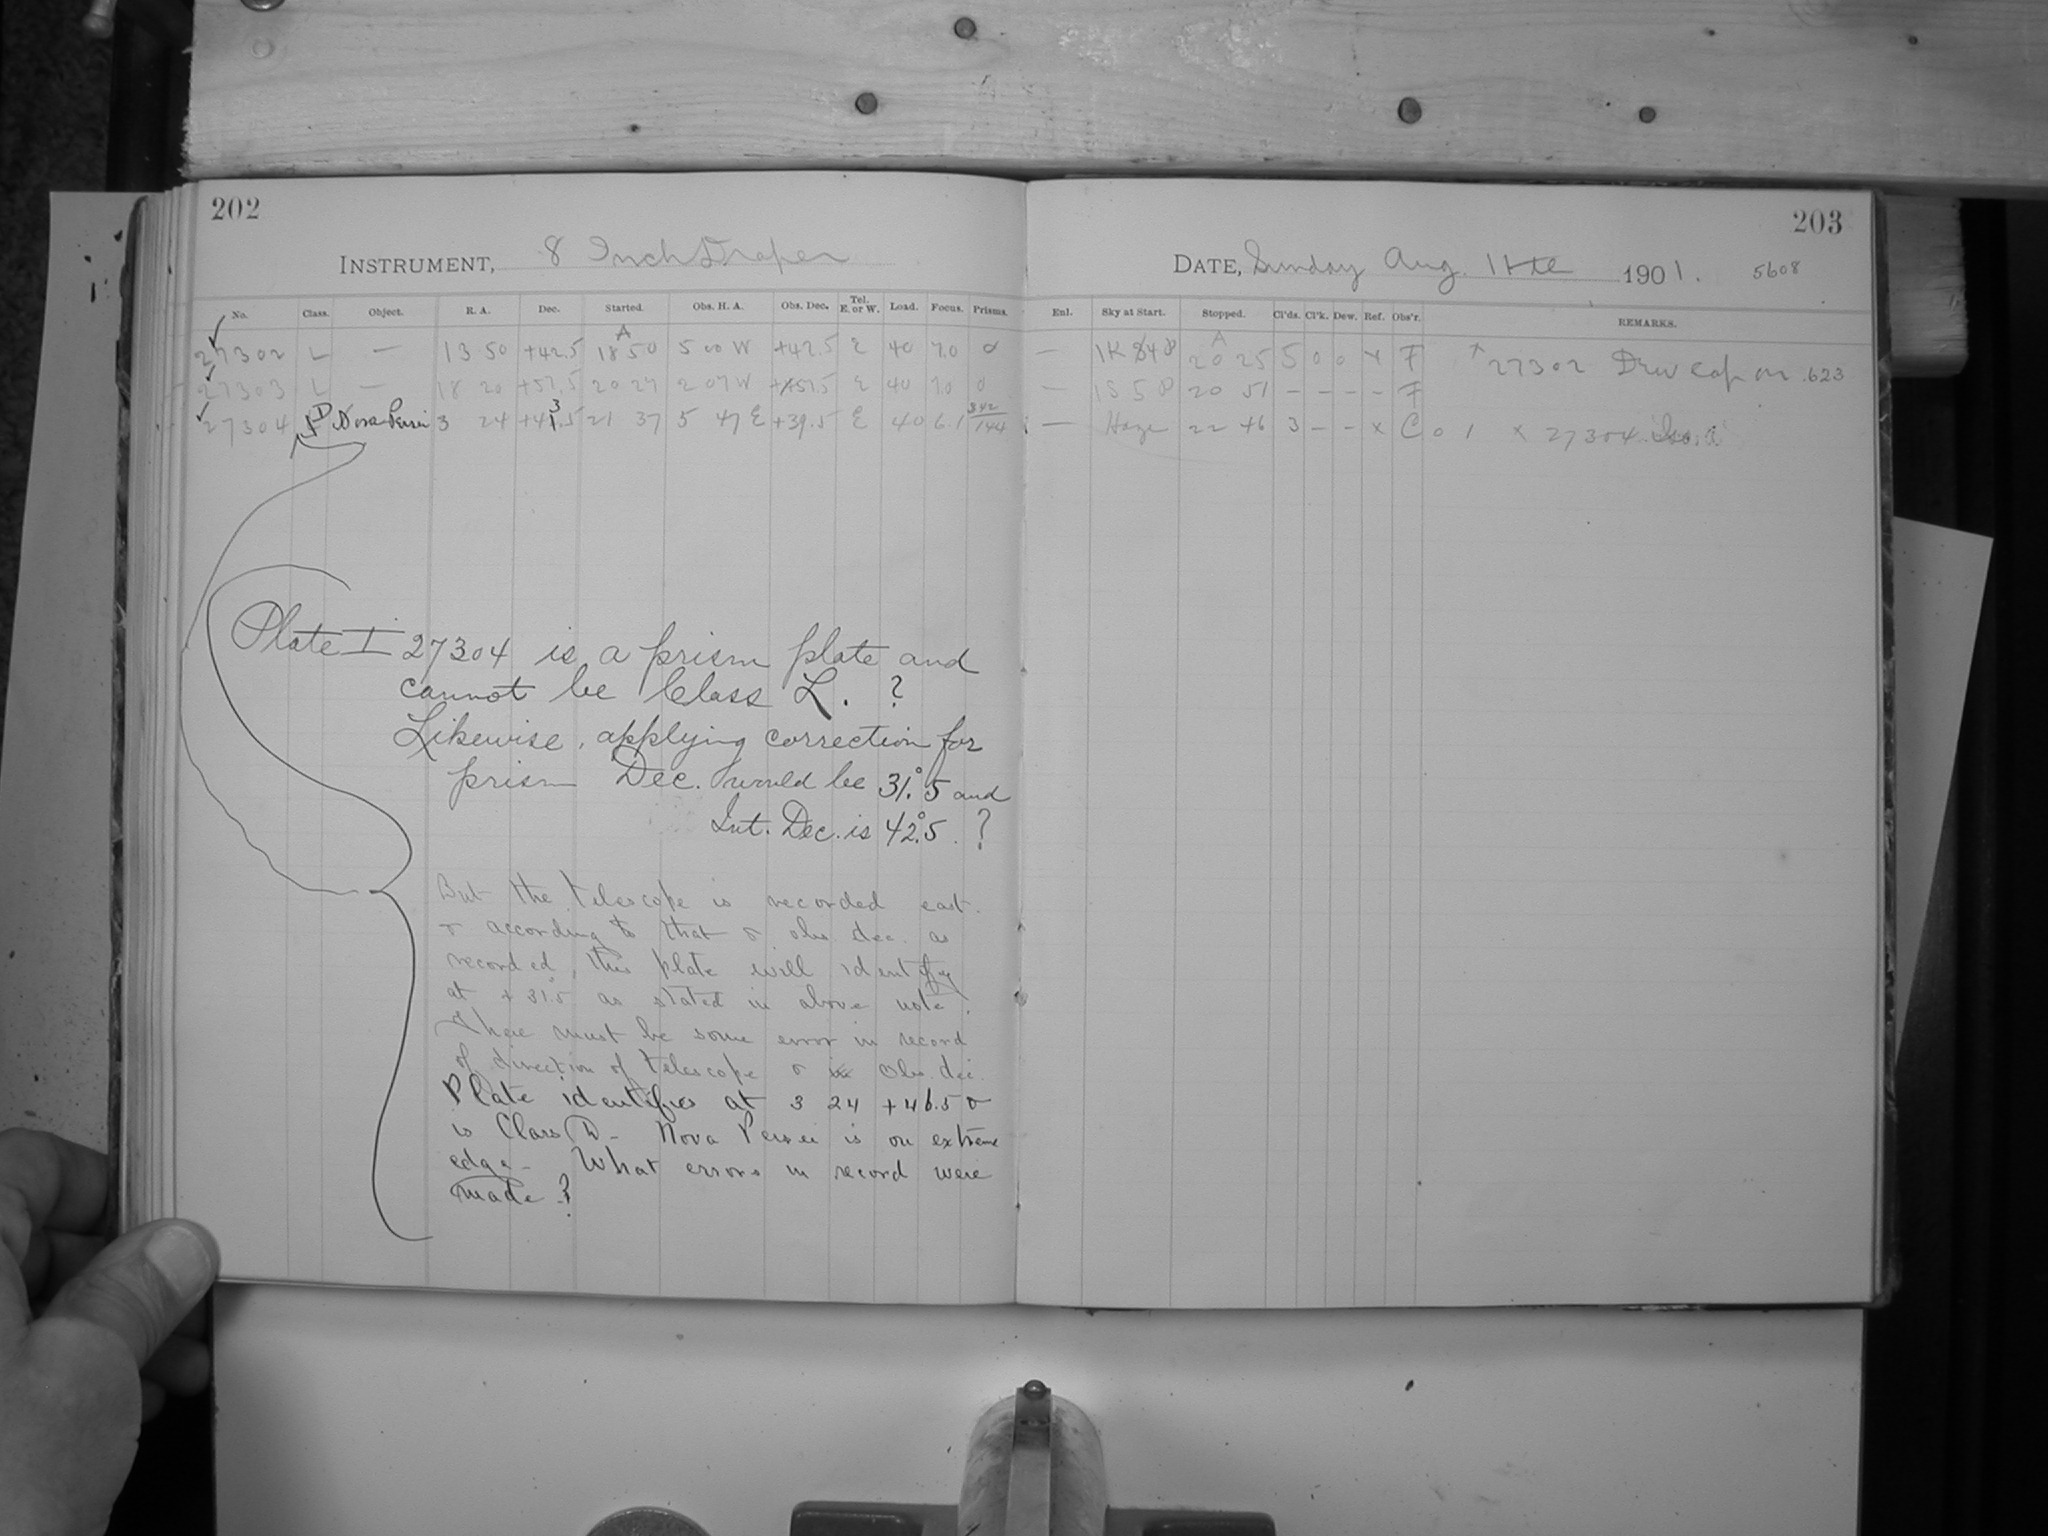 202
203
INSTRUMENT, 8 Inch Draper
DATE, Sunday Aug. 11th 1901. 5608
No. Class. Object. R. A. Dec. Started. Obs. H. A. Obs. Dec. Tel. E. or W. Load. Focus. Prisms.
Enl. Sky at Start. Stopped. Cl'ds. Cl'k. Dew. Ref. Obs'r. REMARKS.
27302 L — 13 50 +42.5 18 50 5 00 W +42.5 E 40 7.0 0
— 20 25 5 0 0 x F x 27302 Dew cap on .623
27303 L — 18 20 +57.5 20 27 2 07 W +57.5 E 40 7.0 0
— 1S 5 P 20 51 – – – – F
27304 D Nova Persei 3 24 21 37 5 47 E +39.5 E 40 6.1 144
— Haze 22 46 3 – – x C 0 1 x 27304
Plate I 27304 is a prism plate and
cannot be Class L. ?
Likewise, applying correction for
prism Dec. would be 31°.5 and
Int. Dec. is 42°.5. ?
But the telescope is recorded east
& according to that & obs. dec. as
recorded, this plate will identify
at + 31°.5 as stated in above note.
There must be some error in record
of direction of telescope or obs. dec.
Plate identifies at 3 24 +46.5 &
is Class D – Nova Persei is on extreme
edge – What errors in record were
made ?